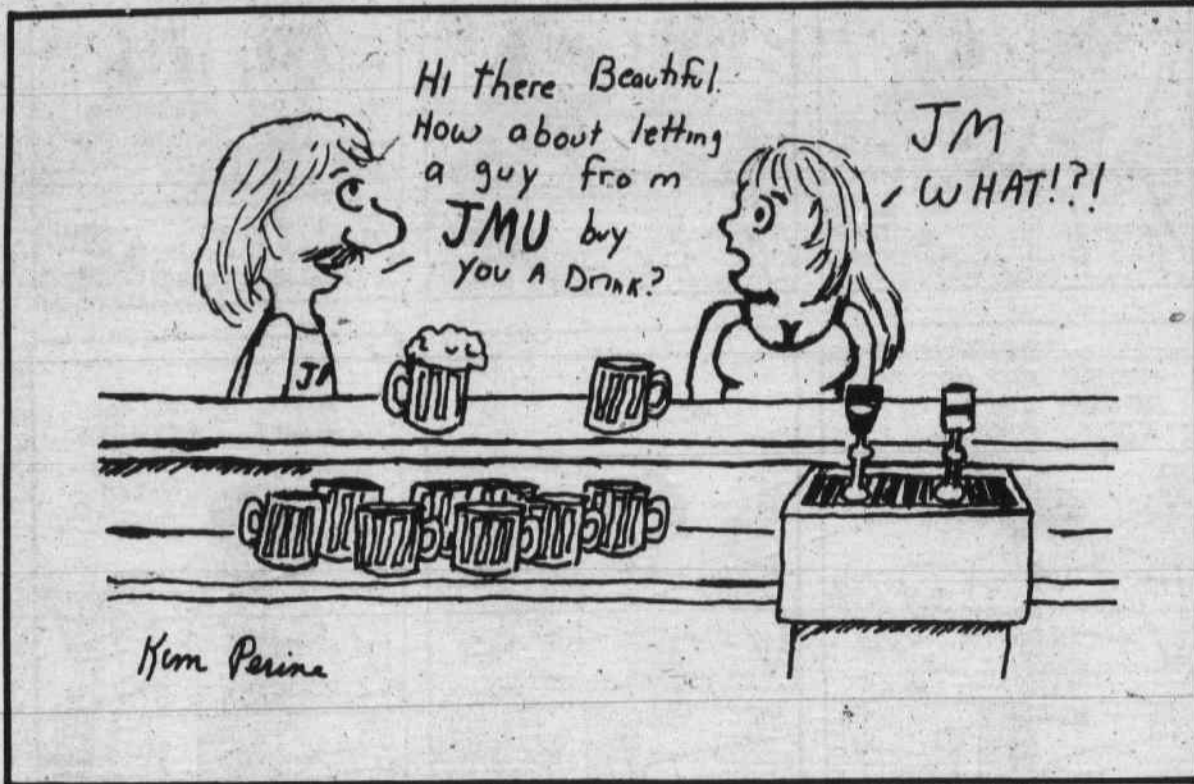 HI there Beautiful.
How about letting
a guy from
JMU buy
you A Drink?
JM
WHAT!?!
Kim Perine